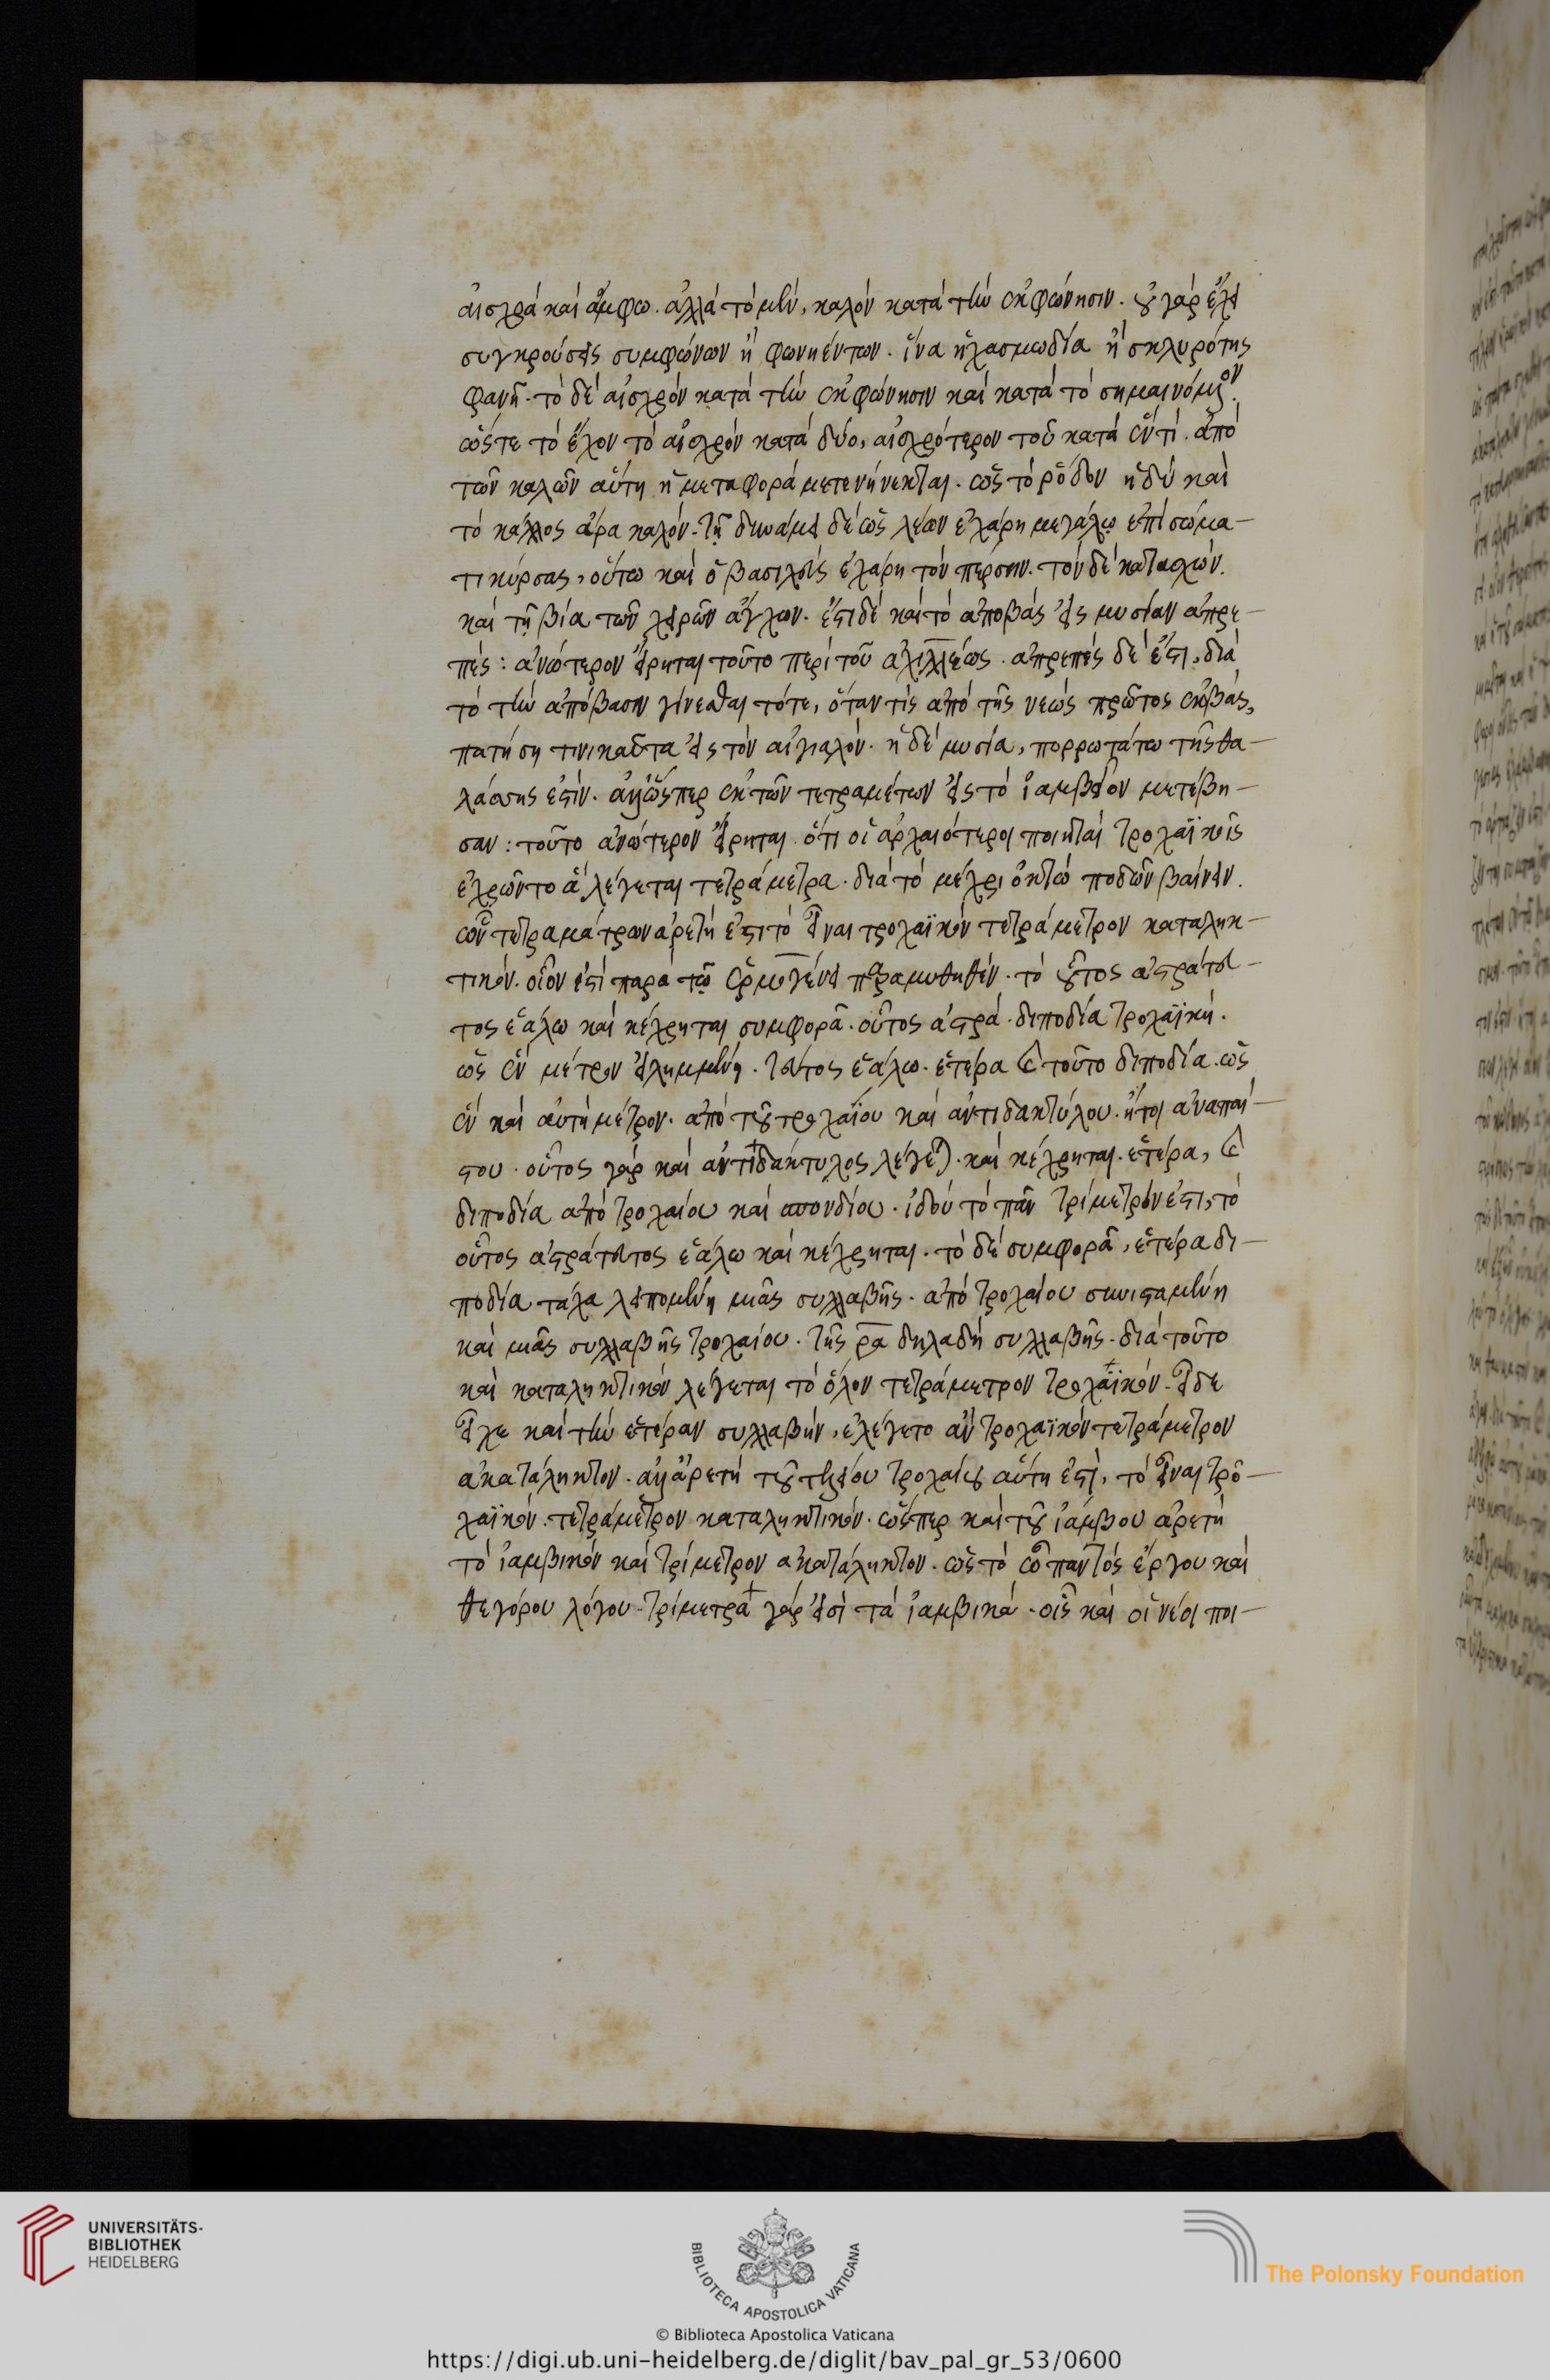 αἰσχρὰ καὶ ἄμφω. ἀλλὰ τὸ μὲν, καλὸν κατὰ τὴν ἐκφώνησιν. οὐ γὰρ ἔχει
συγκρούσεις συμφώνων ἢ φωνηέντων. ἵνα ἡ χασμωδία ἢ σκληρότης
φανῆ. τὸ δὲ αἰσχρὸν κατὰ τὴν ἐκφώνησιν καὶ κατὰ τὸ σημαινόμενον.
ὥστε τὸ ἔχον τὸ αἰσχρὸν κατὰ δύο, αἰσχρότερον τοῦ κατὰ ἕν τι. ἀπὸ
τῶν καλῶν αὕτη ἡ μεταφορὰ μετενήνεκται. ὡς τὸ ῥόδον ἡδὺ καὶ
τὸ κάλλος ἄρα καλόν. τῇ δυνάμει δὲ ὡς λέων ἐχάρη μεγάλῳ ἐπὶ σώμα-
τι κύρσας, οὕτω καὶ ὁ βασιλεὺς ἐχάρη τὸν πέρσην. τόνδε κατασχών.
καὶ τῇ βία τῶν χειρῶν ἄγχων. ἔτι δὲ καὶ τὸ ἀποβὰς εἰς μυσίαν ἀπρε-
πές: ἀνώτερον εἴρηται τοῦτο περὶ τοῦ ἀχιλλέως. ἀπρεπὲς δέ ἐστι, διὰ
τὸ τὴν ἀπόβασιν γίνεσθαι τότε, ὅταν τὶς ἀπὸ τῆς νεὼς πρῶτος ἐκβὰς,
πατήση τινικαῦτα εἰς τὸν αἰγιαλόν. ἡ δὲ μυσία, πορρωτάτω τῆς θα-
λάσσης ἐστίν. ὥσπερ ἐκ τῶν τετραμέτων εἰς τὸ ἰαμβεῖον μετέβη-
σαν: τοῦτο ἀνώτερον εἴρηται. ὅτι οἱ ἀρχαιότεροι ποιηταὶ τροχαϊκοῖς
ἐχρῶντο ἃ λέγεται τετράμετρα. διὰ τὸ μέχρι ὀκτὼ ποδῶν βαίνειν.
ὧν τετραμάτρων ἀρετή ἐστι τὸ εἶναι τροχαϊκὸν τετράμετρον καταληκ-
τικόν. οἷόν ἐστι παρὰ τῷ ἑρμογένει παραμυθηθέν. τὸ οὗτος ἀστράτευ-
τος ἑάλω καὶ κέχρηται συμφορᾶ. οὗτος ἀστρά. διποδία τροχαϊκή.
ὡς ἓν μέτρον εἰλημμένη. τευτος ἑάλω. ἑτέρα τοῦτο διποδία. ὡς
ἓν καὶ αὐτὴ μέτρον. ἀπὸ τοῦ τροχαΐου καὶ ἀντιδακτύλου. ἤτοι ἀναπαί-
στου. οὗτος γὰρ καὶ ἀντιδάκτυλος λέγεται. καὶ κέχρηται. ἑτέρα,
διποδία ἀπὸ τροχαίου καὶ σπονδίου. ἰδοὺ τὸ πᾶν τρίμετρόν ἐστι, τὸ
οὗτος ἀστράτευτος ἑάλω καὶ κέχρηται. τὸ δὲ συμφορᾶ, ἑτέρα δι-
ποδία τάχα λειπομένη μιᾶς συλλαβῆς. ἀπὸ τροχαίου συνισταμένη
καὶ μιᾶς συλλαβῆς τροχαίου. τῆς ρα δηλαδὴ συλλαβῆς. διὰ τοῦτο
καὶ καταληκτικὸν λέγεται τὸ ὅλον τετράμετρον τροχαϊκόν. εἰ δε
εἶχε καὶ τὴν ἑτέραν συλλαβὴν, ἐλέγετο ἂν τροχαϊκὸν τετράμετρον
ἀκατάληκτον. ἀρετὴ τοῦ τελείου τροχαίου αὕτη ἐστὶ, τὸ εἶναι τρο-
χαϊκὸν. τετράμετρον καταληκτικόν. ὥσπερ καὶ τοῦ ἰάμβου ἀρετὴ
τὸ ἰαμβικὸν καὶ τρίμετρον ἀκατάληκτον. ὡς τὸ ἐκ παντὸς ἔργου καὶ
θεγόρου λόγου. τρίμετρα γὰρ εἰσὶ τὰ ἰαμβικά. οἷς καὶ οἱ νέοι ποι-
UNIVERSITÄTS-
BIBLIOTHEK
HEIDELBERG
BIBLIOTECA APOSTOLICA VATICANA
The Polonsky Foundation
© Biblioteca Apostolica Vaticana
https://digi.ub.uni-heidelberg.de/diglit/bav_pal_gr_53/0600